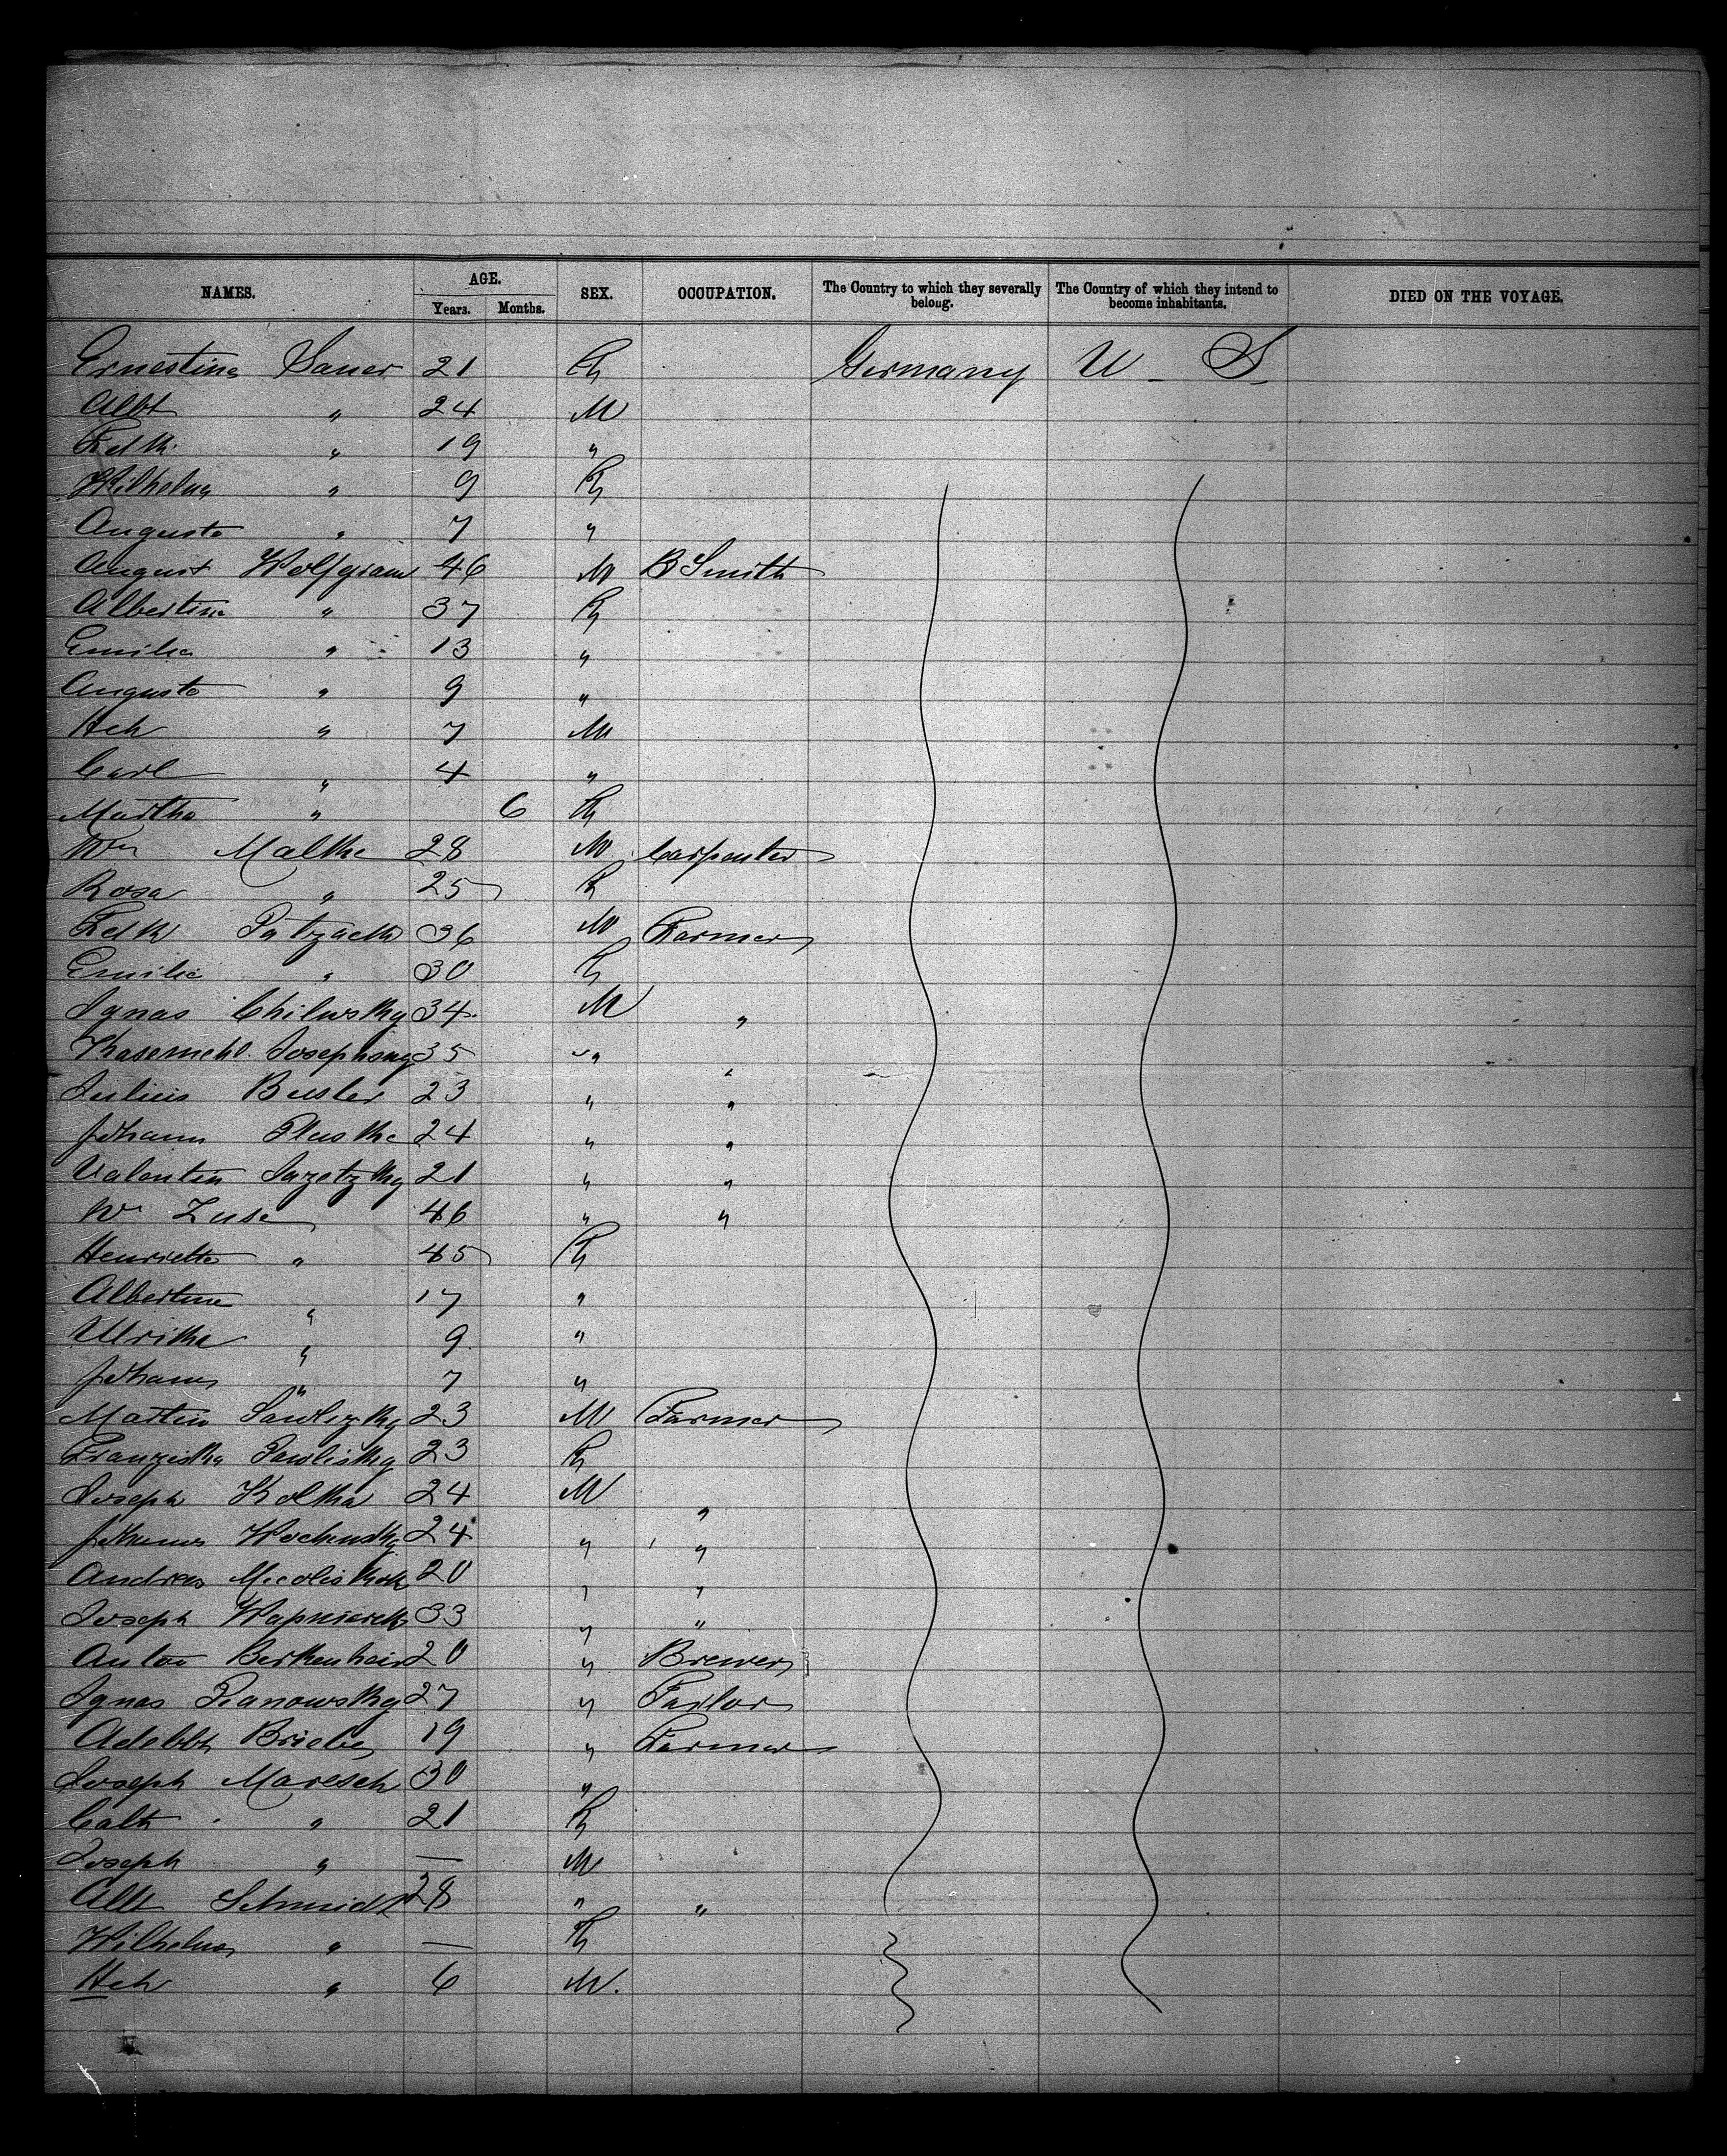 NAMES. AGE. SEX. OCCUPATION. The Country to which they severally belong. The Country of which they intend to become inhabitants. DIED ON THE VOYAGE.
Years. Months.
Ernestine Sauer 21 F Germany U - S
Albt " 24 M
Fedk " 19 "
Wilhelm " 9 F
Auguste " 7 "
August Wolfgram 46 M B Smith
Albertine " 37 F
Emilie " 13 "
Auguste " 9 "
Hch " 7 M
Carl " 4 "
Martha " 6 F
Wm Malke 28 M Carpenter
Rosa " 25 F
Fedk Patzack 36 M Farmer
Emilie " 30 F
Ignas Chilewsky 34 M "
Josephsny 35 " "
Julius Busler 23 " "
Johann Pluske 24 " "
Valentin 21 " "
Wm Zuse 46 " "
Henriette " 45 F
Albertine " 17 "
Ulrike " 9 "
Johann " 7 "
Martin 23 M Farmer
Franziska Pawlisky 23 F
Joseph Kolka 24 M "
24 " "
Andreas 20 " "
Joseph 33 " "
Anton Berkenheir 20 " Brewer
Ignas Pianowsky 27 " Tailor
Adelbt 19 " Farmer
Joseph Maresch 30 "
Cath " 21 F
Joseph " — M
Albt Schmidt 28 " "
Wilhelm " — F
Hch " 6 M.